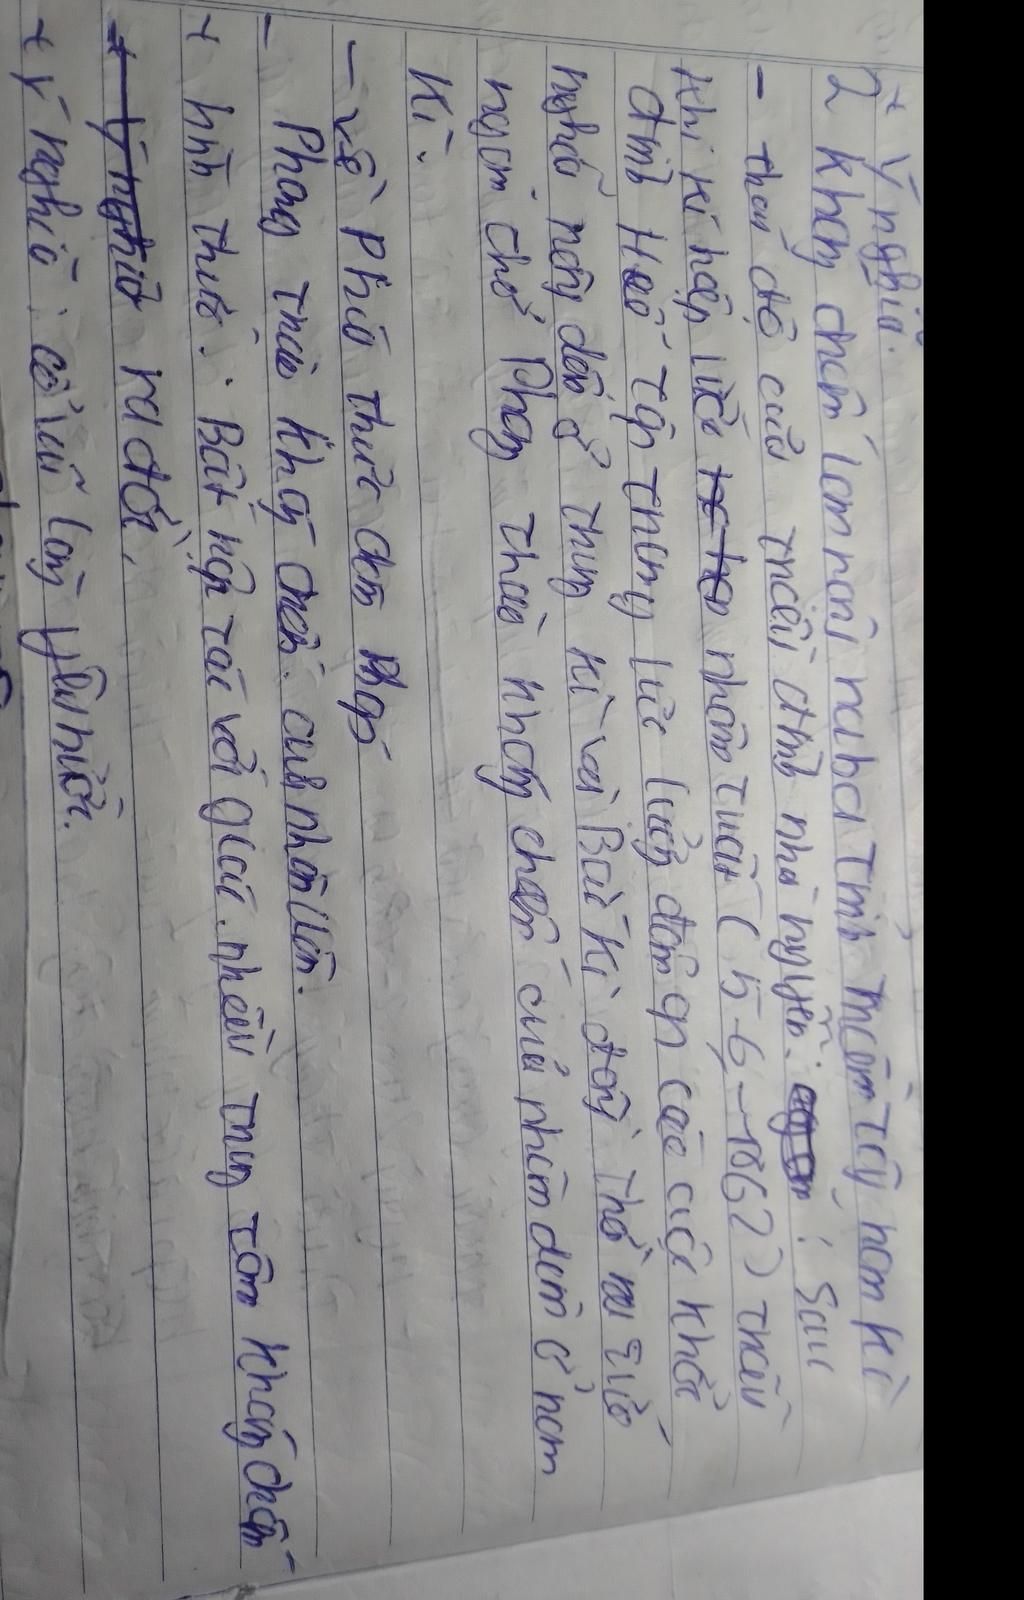 + Ý nghĩa.
2 kháng chiến lan rộng ra ba Tỉnh miền Tây nam kì
- thái độ của triều đình nhà nguyễn: : Sau
khi kí hiệp ước nhâm tuất (5-6-1862) triều
đình Huế Tập trung lực lượng đàn áp các cuộc khởi
nghĩa nông dân ở trung kì và Bắc kì đồng thời ra sức
ngăn chở Phong trào kháng chiến của nhân dân ở nam
kì.
- về phía thực dân Pháp
- Phong trào kháng chiến của nhân dân.
+ hình thức: Bất hợp tác với giặc, nhiều trung tâm kháng chiến
ra đời,
+ Ý nghĩa: cổ vũ lòng yêu nước.